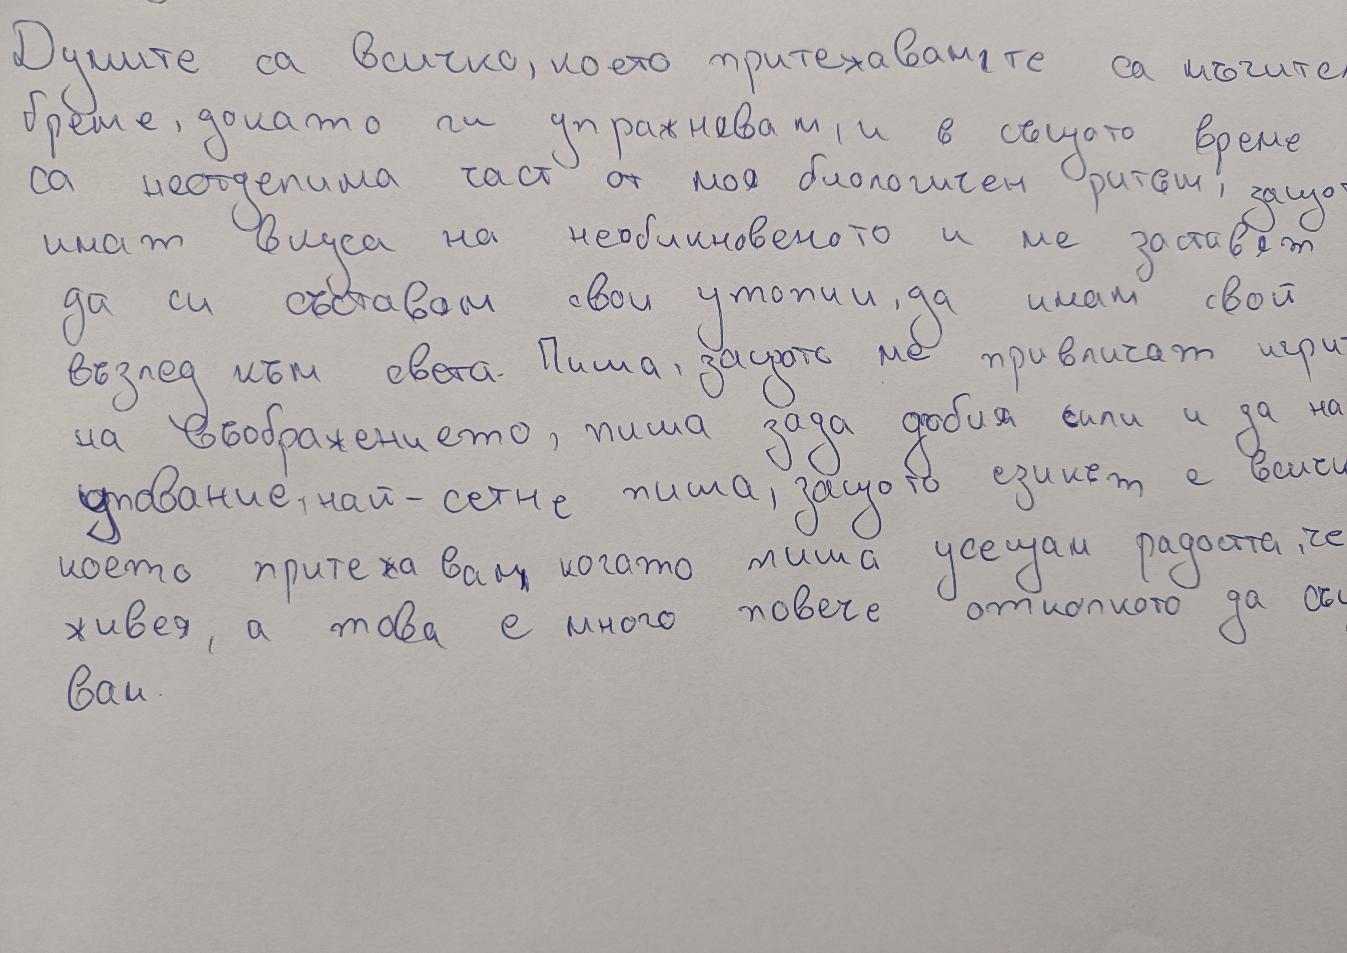 Думите са всичко, което притежавам, те са мъчител
бреме, докато ги упражнявам, и в същото време
са неотделима част от моя биологичен ритъм, защот
имат вкуса на необикновеното и ме заставят
да си съставам свои утопии, да имам свой
възглед към света. Пиша, защото ме привличат игрит
на въображението, пиша зада добия сили и да на
упование, най-сетне пиша, защото езикът е всичк
което притежавам, когато пиша усещам радостта, че
живея, а това е много повече отколкото да същ
вам.